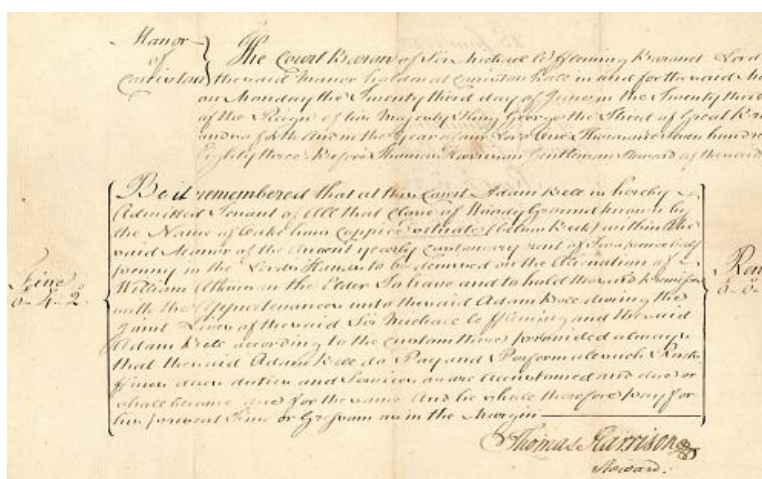 Manor of Coniston } The Court Baron of Sir Michael le Fleming Baronet Lord
the said Manor holden at Coniston Hall in and for the said
on Monday the Twenty third day of June in the Twenty third
of the Reign of his Majesty King George the Third of Great
and so forth And in the year of our Lord One Thousand seven hundred
Eighty three Before Thomas Harrison Gentleman Steward of the said
Be it remembered that at this Court Adam Bell is hereby
Admitted Tenant of All that Close of Woody Ground known by
the Name of Coppice situate within the
said Manor of the Ancient yearly customary rent of Two pence half
penny in the Lords Hands to be demised on the Alienation of
William Atkinson the Elder To have and to hold the said Premises
with the Appurtenances unto the said Adam Bell during the
joint Lives of the said Sir Michael le Fleming and the said
Adam Bell according to the custom there provided always
that the said Adam Bell do Pay and Perform all such Rents
ffines dues duties and Services as are Accustomed and due or
shall become due for the same And he shall therefore pay for
his present Fine or Gressum as in the Margin
Fine
0-4-2
Thomas Harrison
Steward.